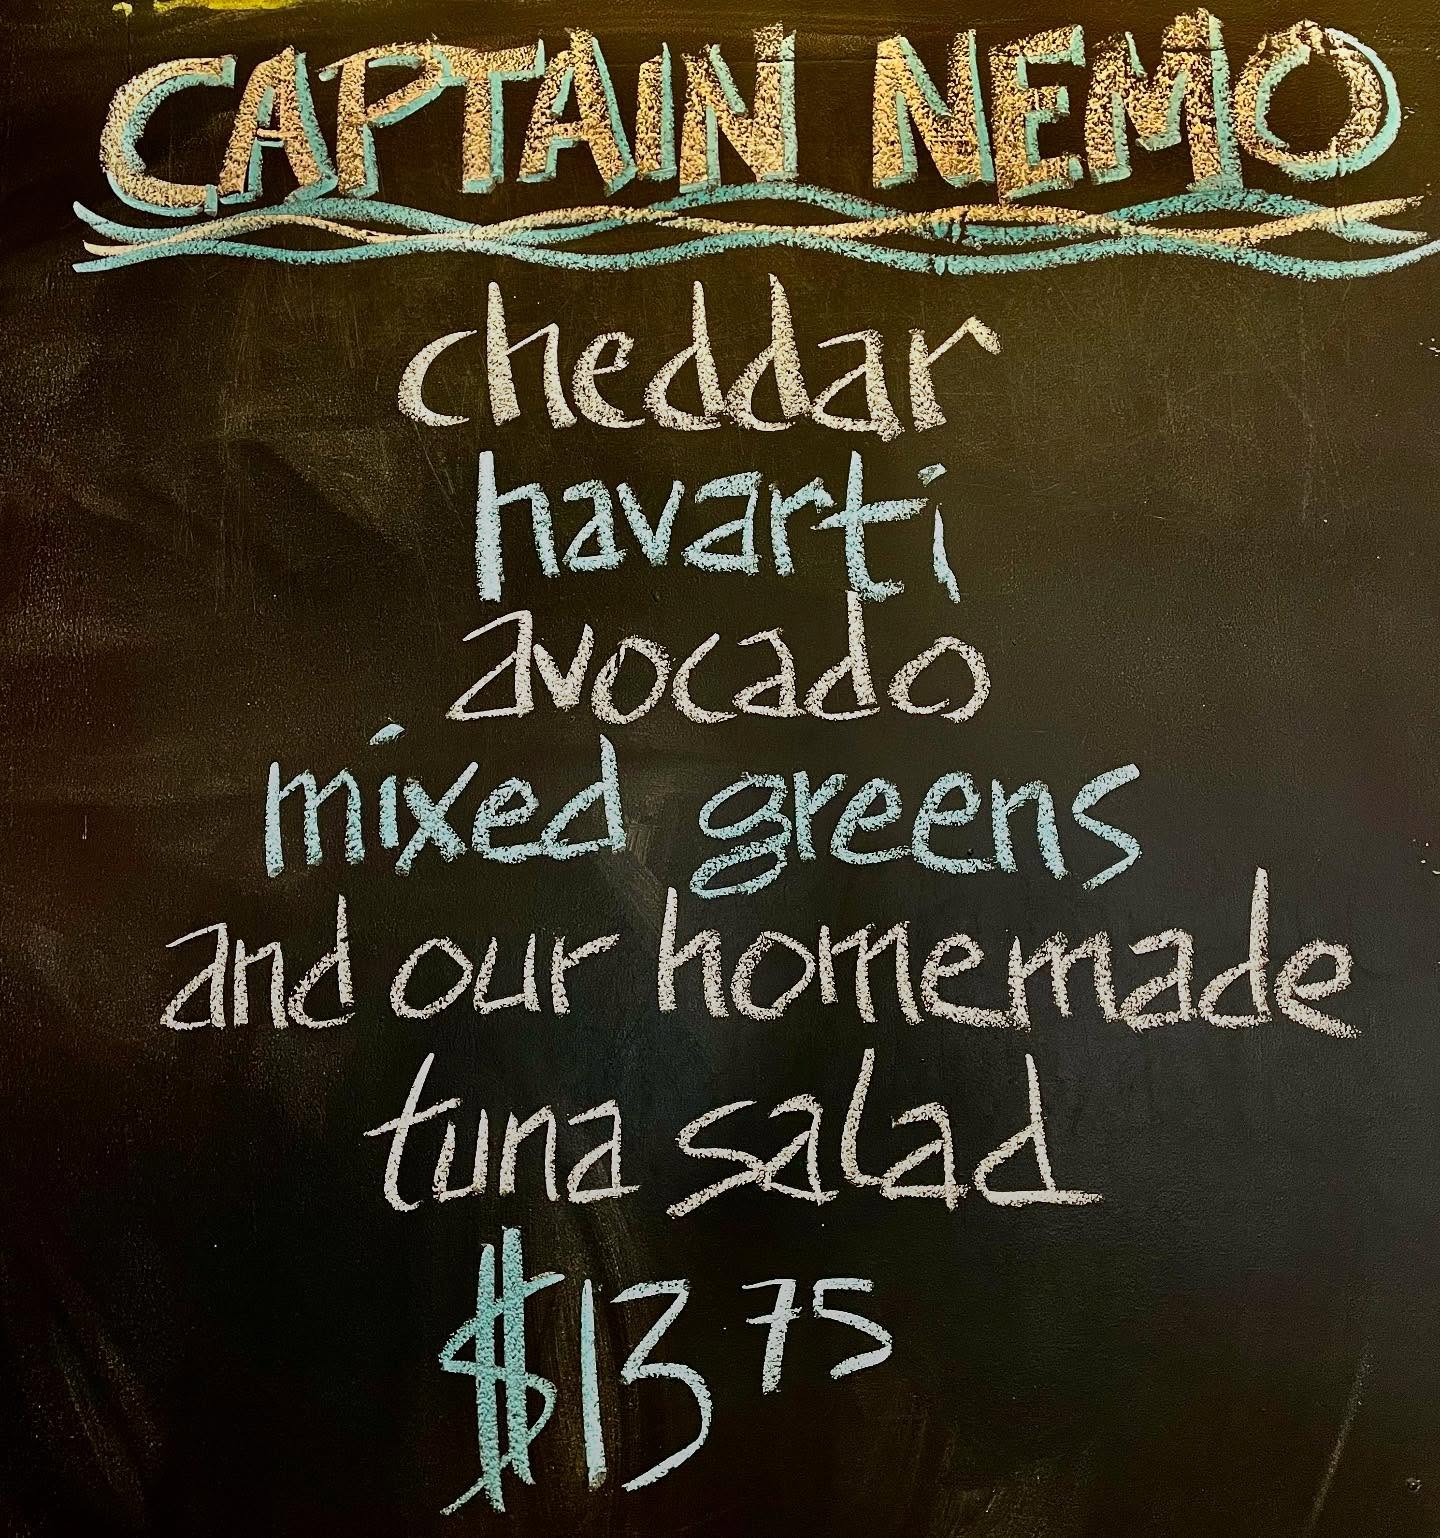 CAPTAIN NEMO
cheddar
havarti
avocado
mixed greens
and our homemade
tuna salad
$13 75